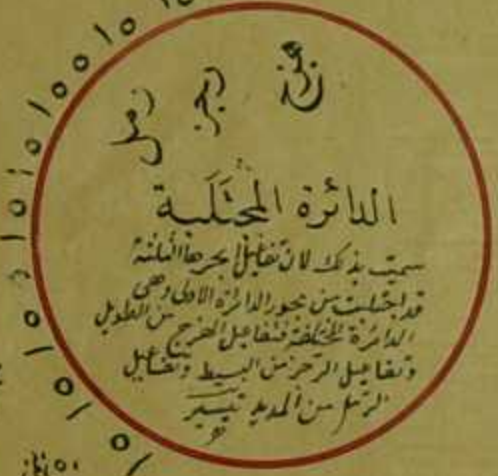 هزج رجز رمل
الدائرة المجتلبة
سميت بذلك لان تفاعيل ابحرها الثلثة
قد اجتلبت من بحور الدائرة الاولى وهى
الدائرة المختلفة فتفاعيل الهزج من الطويل
وتفاعيل الرجز من البسيط وتفاعيل
الرمل من المديد